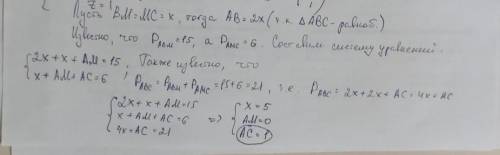 Z = 1
Пусть BM=MC=x, тогда AB=2x (т.к. ΔABC-равноб.)
Известно, что P_ABM=15, а P_AMC=6. Составим систему уравнений.
{2x+x+AM=15, Также известно, что
{x+AM+AC=6, P_ABC=P_ABM+P_AMC=15+6=21, т.е. P_ABC=2x+2x+AC=4x=AC
{2x+x+AM=15 {x=5
{x+AM+AC=6 => {AM=0
{4x=AC=21 {AC=1